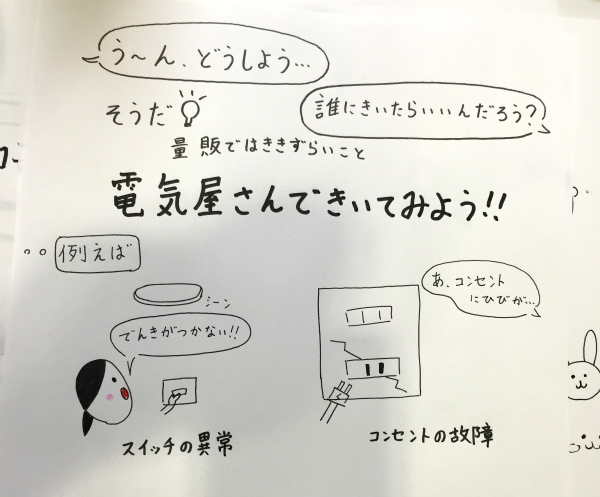 う〜ん、どうしよう…
誰にきいたらいいんだろう?
そうだ
量販ではききずらいこと
電気屋さんできいてみよう!!
例えば
シーン
でんきがつかない!!
あ、コンセント
にひびが…
スイッチの異常
コンセントの故障